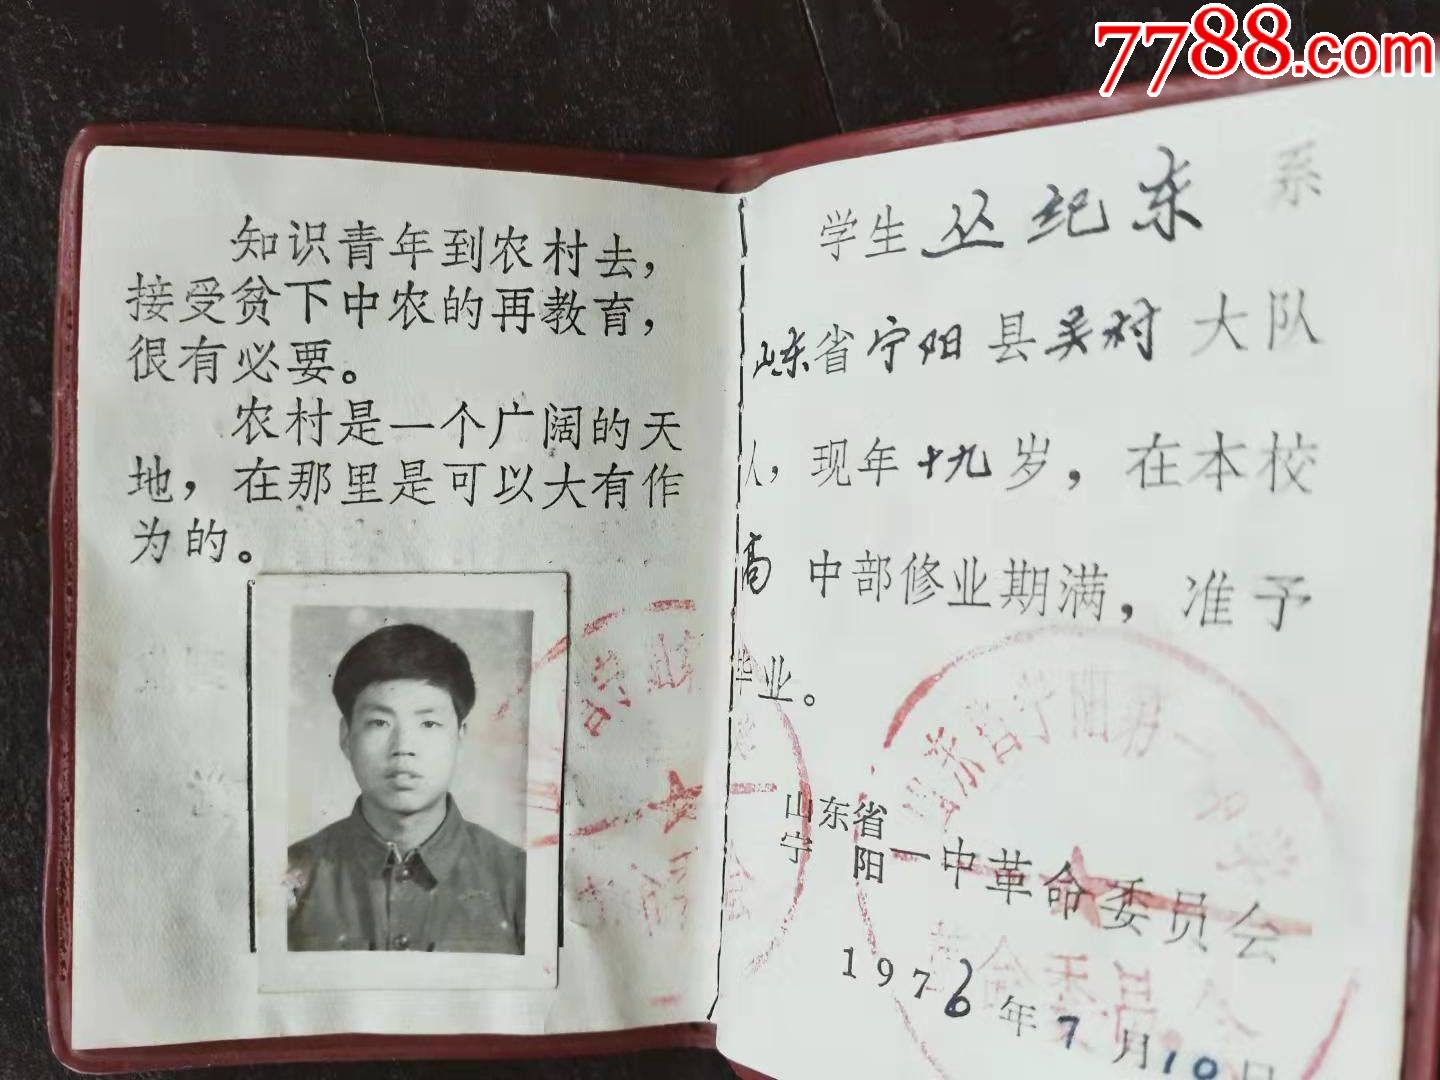 7788.com
知识青年到农村去，
接受贫下中农的再教育，
很有必要。
农村是一个广阔的天
地，在那里是可以大有作
为的。
学生丛纪东系
山东省宁阳县吴村大队
人，现年十九岁，在本校
高中部修业期满，准予
毕业。
山东省
宁阳一中革命委员会
1976年7月10日
山东省宁阳县第一中学
革命委员会